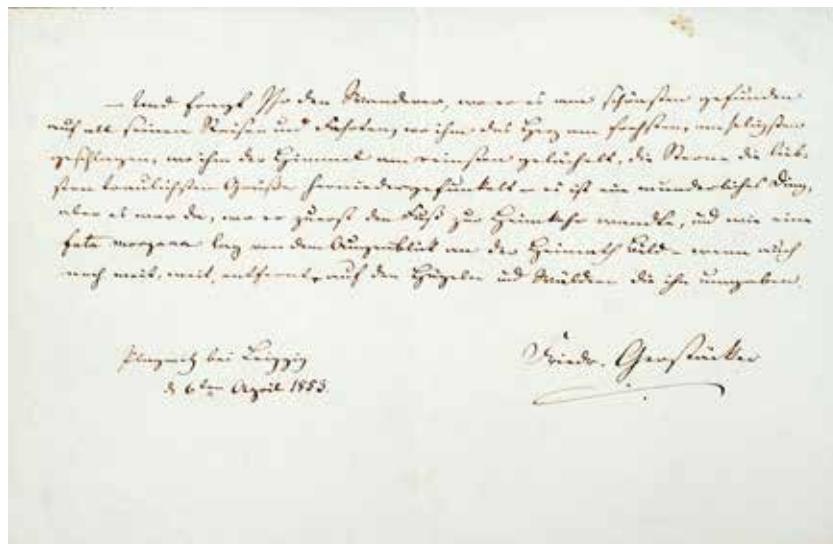 – Und fragt Ihr den Wanderer, wo er es am schönsten gefunden
auf all seinen Reisen und Fahrten, wo ihm das Herz am frohsten, am seligsten
geschlagen, wo ihm der Himmel am reinsten gelächelt, die Sterne die lieb-
sten traulichsten Grüße herniedergefunkelt – es ist ein wunderliches Ding,
aber es war da, wo er zuerst den Fuß zur Heimkehr wandte, und wie eine
fata morgana lag von dem Augenblick an der Heimath Bild – wenn auch
noch weit, weit entfernt, auf den Hügeln und Wäldern die ihn umgeben.
Plagwitz bei Leipzig
d. 6ten April 1853.
Friedr. Gerstäcker